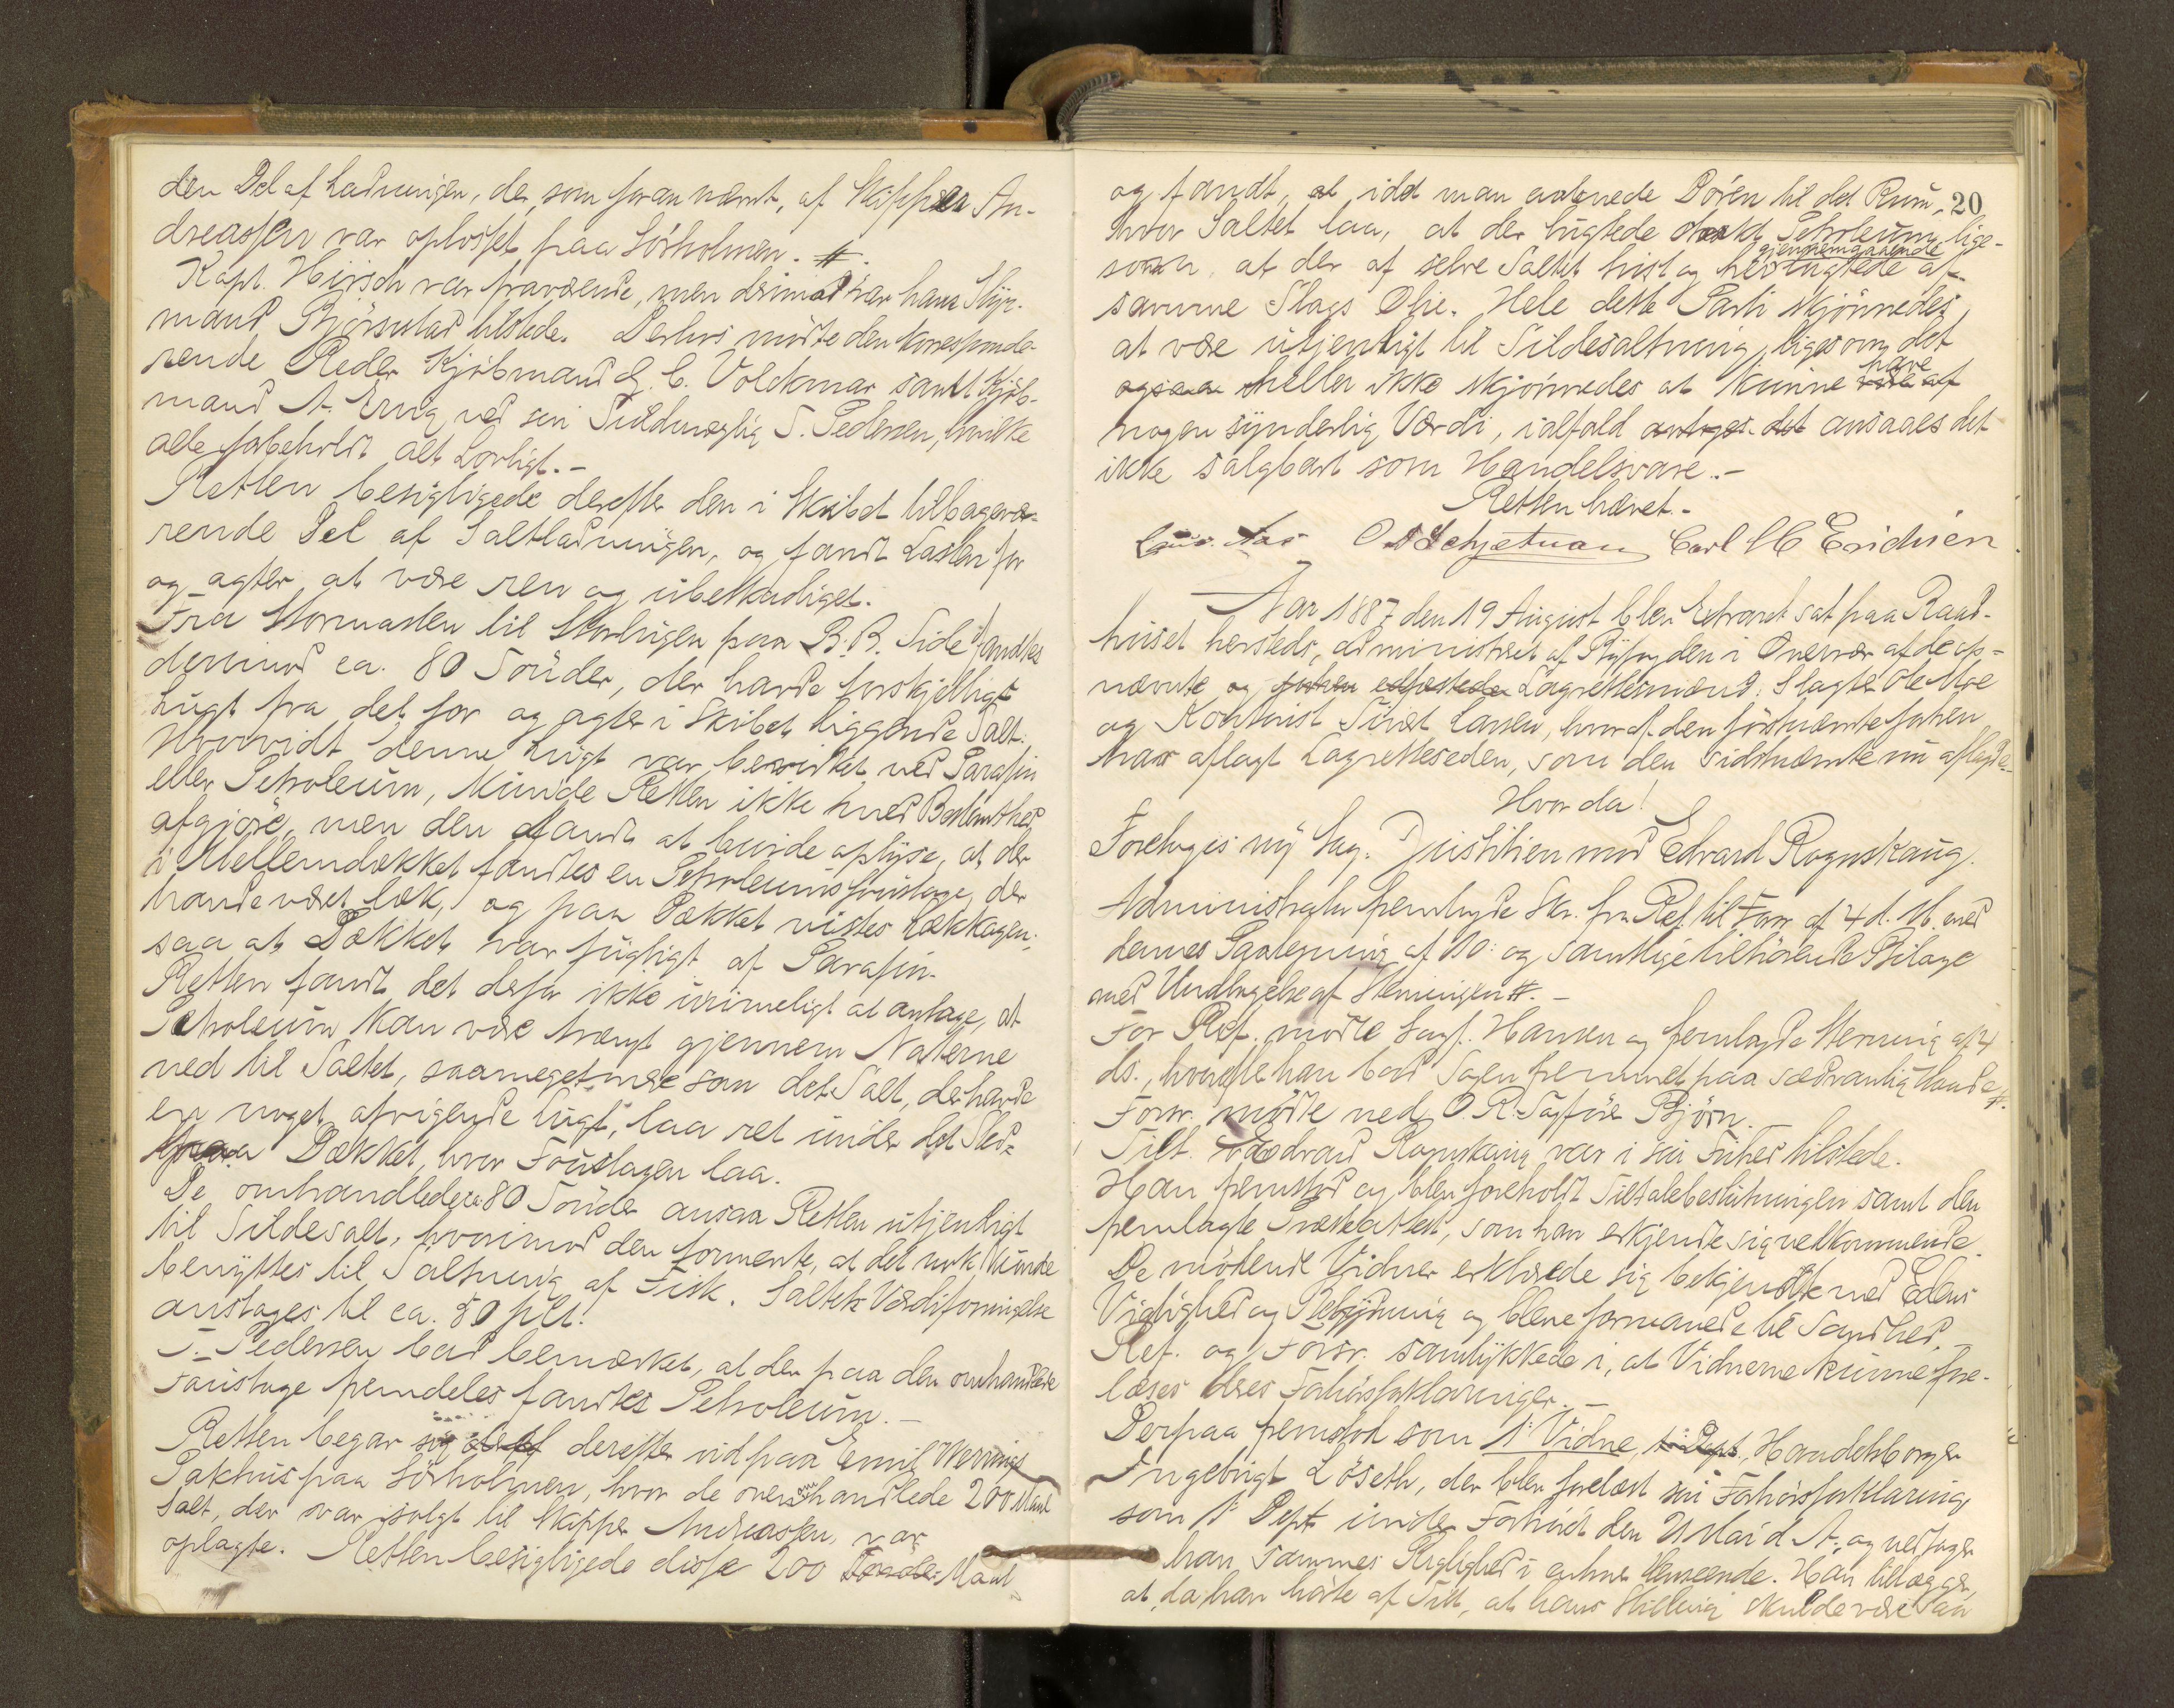 den Del af Ladningen, der, som foran nævnt, af Skipper An-
dreassen var oplosset paa Sörholmen. #.
Kapt. Hirsch var fraværende, men derimod var hans Styr-
mand Björnstad tilstede. Derhos mödte den korresponde-
rende Reder Kjöbmand G. C. Volckmar samt Kjöb-
mand A. Erng ved sin Fuldmægtig T. Pedersen, hvilke
alle forbeholdt alt Lovligt.-
Retten besigtigede derefter den i Skibet tilbagevæ-
rende Del af Saltladningen, og fandt Lasten for
og agter at være ren og ubeskadiget.
Fra Stormasten til Storlugen paa B.B. Side fandtes
derimod ca. 80 Tönder, der havde forskjelligt
Lugt fra det for og agter i Skibet liggende Salt.
Hvorvidt denne Lugt var bevirket ved Parafin
eller Petroleum, kunde Retten ikke med Bestemthed
afgjöre, men den fandt at burde oplyse, at der
i Mellemdækket fandtes en Petroleumsfoustage, der
havde været læk, og paa Dækket vistes Lækkagen,
saa at Dækket var fugtigt af Parafin.
Retten fandt det derfor ikke urimeligt at antage, at
Petroleum kan være trængt gjennem Naterne
ned til Saltet, saameget mere som det Salt, der havde
en noget afvigende Lugt, laa ret under det Sted
paa Dækket, hvor Foustagen laa.
De omhandlede ca. 80 Tönder ansaa Retten utjenligt
til Sildesalt, hvorimod den formente, at det nok kunde
benyttes til Saltning af Fisk. Saltets Værdiforringelse
anslages til ca. 50 pCt.
T. Pedersen bad bemærket, at der paa den omhandlede
Foustage fremdeles fandtes Petroleum.-
Retten begav sig derefter ud paa Emil Wernigs
Pakhus paa Sörholmen, hvor de ovenomhandlede 200 Maal
Salt, der var solgt til Skipper Andreassen, var
oplagte. Retten besigtigede disse 200 Tönder Maal
20
og fandt, at idet man aabnede Dören til det Rum,
hvor Saltet laa, at der lugtede stærkt Petroleum, lige-
som at der af selve Saltet hist og her gjennemgaaende lugtede af
samme Slags Olie. Hele dette Parti skjönnedes
at være utjenligt til Sildesaltning, ligesom det
ogsaa heller ikke skjönnedes at kunne være af have
nogen synderlig Værdi, ialfald antoges det ansaaes det
ikke salgbart som Handelsvare.-
Retten hævet.-
O. Schjetnan Carl M Erichsen
Aar 1887 den 19 August blev Extraret sat paa Raad-
huset hersteds, administreret af Byfogden i Overvær af de op-
nævnte og Lagrettesmænd: Slagter Ole Moe
og Kontorist Sivert Larsen, hvoraf den förstnævnte forhen
har aflagt Lagretteseden, som den sidstnævnte nu aflagde.
Hvorda!
Foretoges ny Sag: Justitien mod Edvard Rognskaug.
Administrator fremlagde Skr. fra Ref. til Forsv. af 4 d. M. med
dennes Paategning af 10: og samtlige tilhörende Bilage
med Undtagelse af Stevningen #. -
For Ref. mödte Sagf. Hansen og fremlagde Stevning af 4
ds., hvorefter han bad Sagen fremmet paa sædvanlig Maade #.
Forsv. mödte ved O.R. Sagförer Björn.
Tilt. Edvard Rognskaug var i sin Frihed tilstede.
Han fremstod og blev foreholdt Tiltalebeslutningen samt den
fremlagte Præsteattest, som han erkjendte sig vedkommende.
De mödende Vidner erklærede sig bekjendte med Edens
Vigtighed og Betydning og bleve formanede til Sandhed.-
Ref. og Forsv. samtykkede i, at Vidnerne kunne fore-
læses deres Forhörsforklaringer.-
Derpaa fremstod som 1. Vidne, Handelsborger
Ingebrigt Löseth, der blev forelæst sin Forhörsforklaring
som 1. Dept under Forhöret den Mai d. A., og vedtager
han sammes Rigtighed i enhver Henseende. Han tillægger,
at da han hörte af Tilt., at hans Stilling skulde være saa